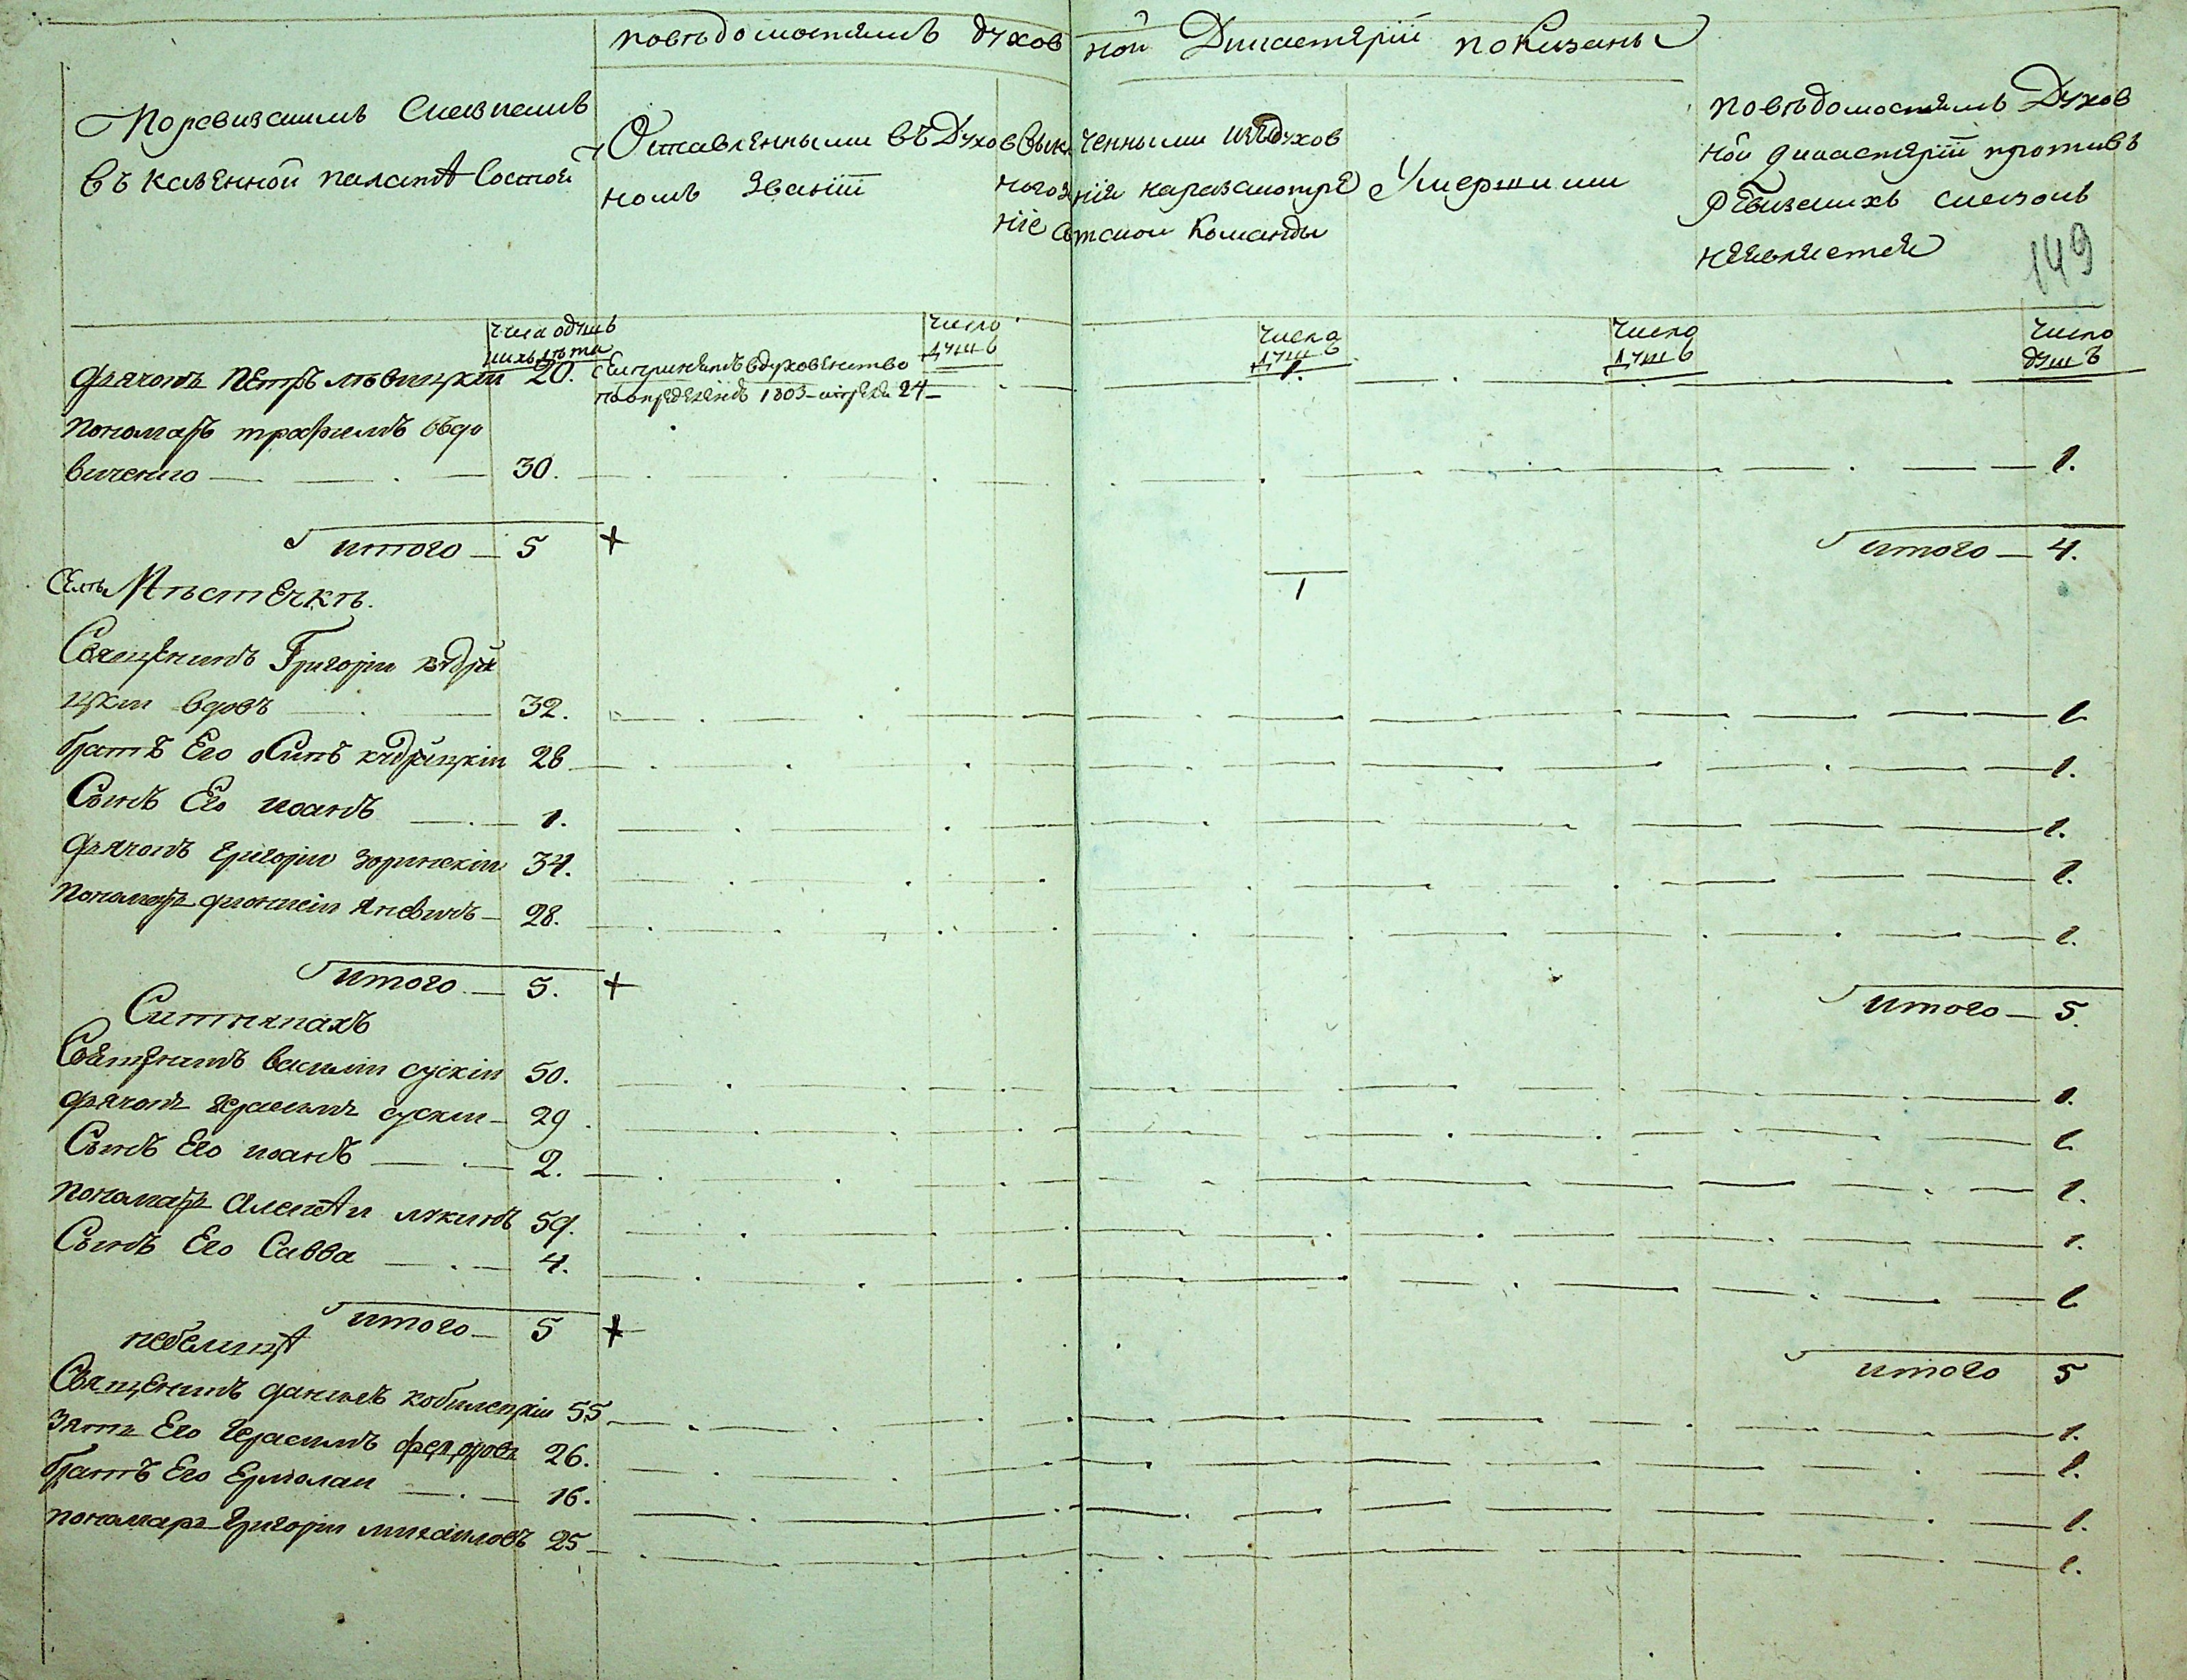 повѣдомостямъ духовной Дикастеріи показаны
Поревизскимъ Сказкамъ
въ казенной палатѣ Состой
Оставленными въ Духов
номъ званіи
ченными изъ духов
ногоз нія наразсмотре
ніе Свѣтской Команды
Умершими
повѣдомостямъ Духов
ной дикастеріи противъ
Ревизкихъ сказокъ
неявляется
149
числа душъ
ихъ лѣта
число
душъ
числа
душъ
число
душъ
число
душъ
дьячокъ Петръ лѣвицкій 20.
въ духовенство
1803 24
1.
Пономарь трофимъ
30. 1.
итого 5 +
1
итого 4.
Селѣ Мѣстечкѣ.
Священникъ Григорій
вдовъ 32. 1
братъ Его 28 1.
Сынъ Его иоанъ 1. 1.
дьячокъ григорій зоринскій 34. 1.
Пономарь дионисій Яневичъ 28. 1.
итого 5. +
итого 5.
Ситнянахъ
Священникъ василій сускій 50. 1.
дьячокъ герасимъ сускій 29. 1.
Сынъ Его иоанъ 2. 1.
Пономарь Алексѣй лукинъ 59. 1.
Сынъ Его Савва 4. 1
итого 5 +
итого 5
небелицѣ
Священникъ данилъ кобилецкій 55 1.
Зять Его герасимъ федоровъ 26. 1.
братъ Его Ермолай 16. 1.
пономарь григорій михайловъ 25 1.